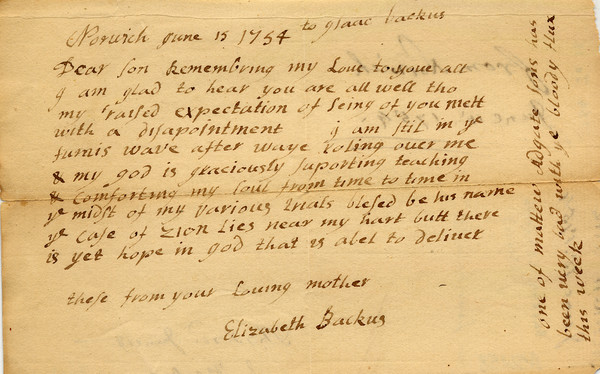 Norwich june 15 1754
to jsaac backus
Dear son Remembring my Love to youe all
j am glad to hear you are all well tho
my raised expectation of seing of you mett
with a disapointment j am stil in ye
furnis wave after wave roling over me
& my god is graciously suporting teaching
& Comforting my soul from time to time in
ye midst of my various trials blesed be his name
ye Case of Zion Lies near my hart butt there
is yet hope in god that is abel to deliver
these from your Loving mother
Elizabeth Backus
one of mattew Adgate sons has
been very bad with ye bloody flux
this week